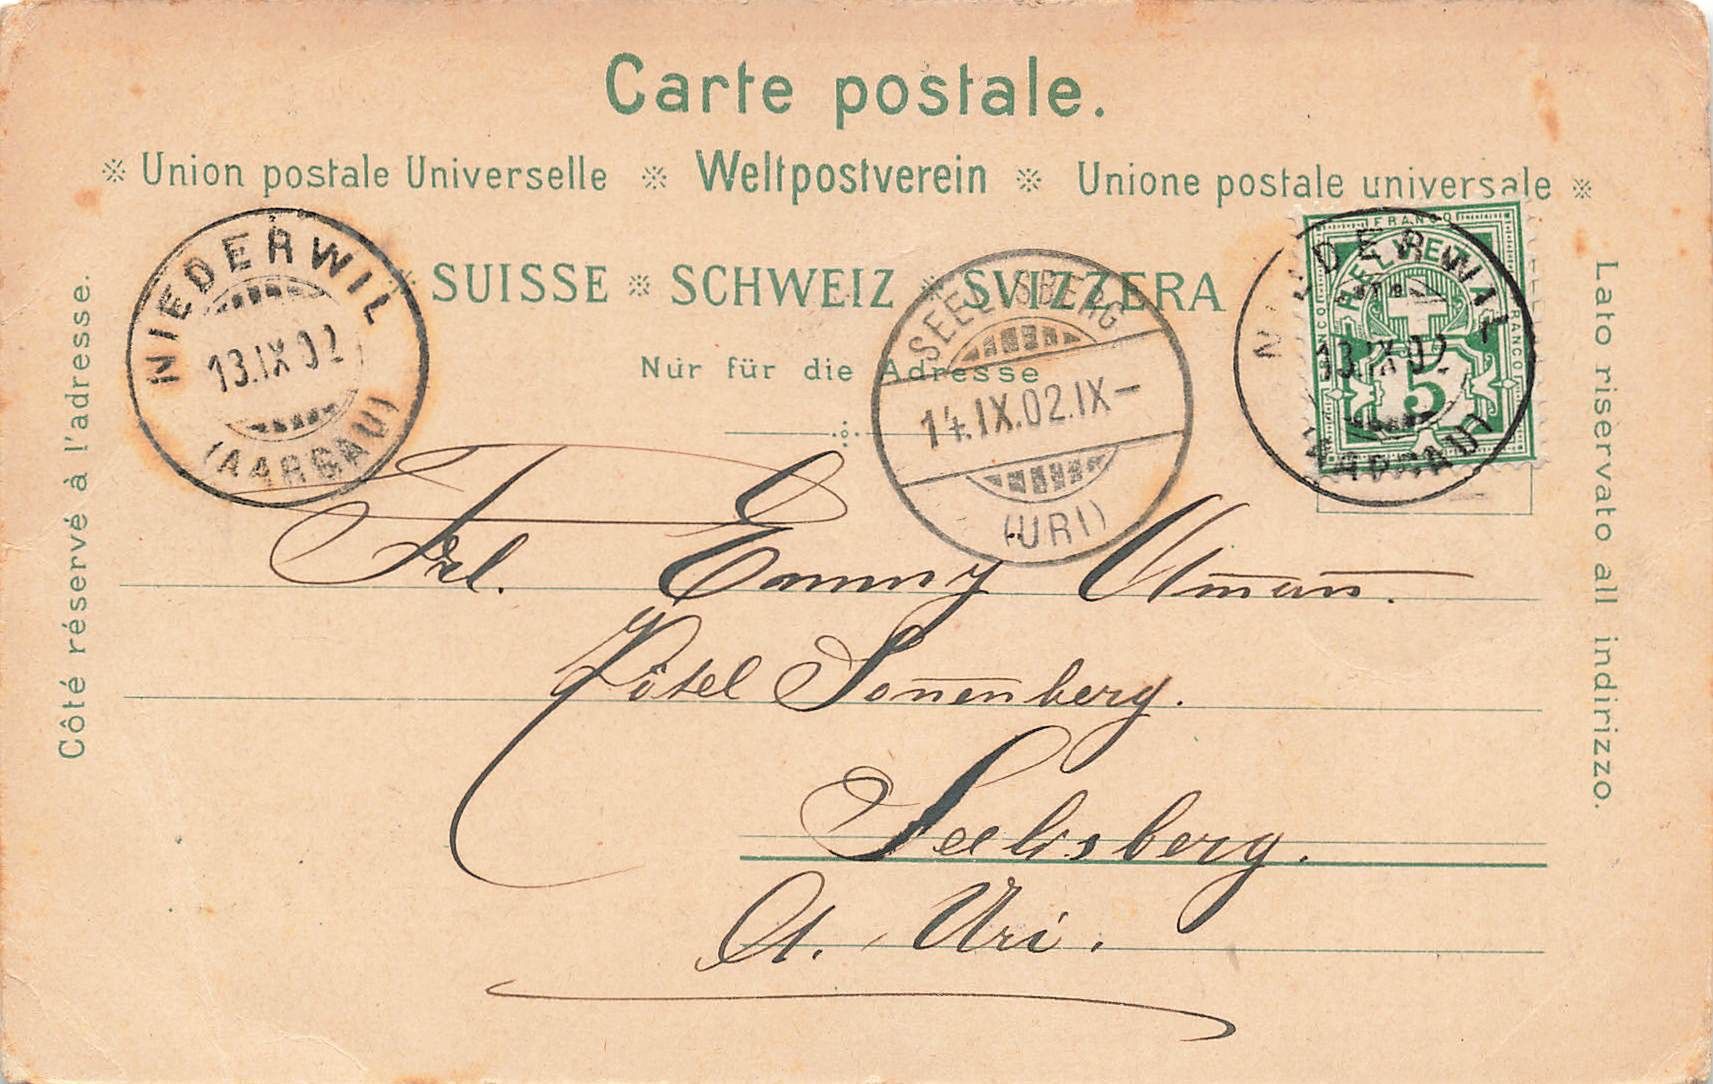 Carte postale.
※ Union postale Universelle ※ Weltpostverein ※ Unione postale universale ※
SUISSE ※ SCHWEIZ ※ SVIZZERA
Nur für die Adresse
Côté réservé à l'adresse.
Lato riservato all indirizzo.
NIEDERWIL
13.IX.02
(AARGAU)
SEELISBERG
14.IX.02.IX-
(URI)
NIEDERWIL
13.IX.02
(AARGAU)
FRANCO
HELVETIA
FRANCO
FRANCO
5
Frl. Emmy
Hôtel Soñenberg.
Seelisberg.
Ct. Uri.